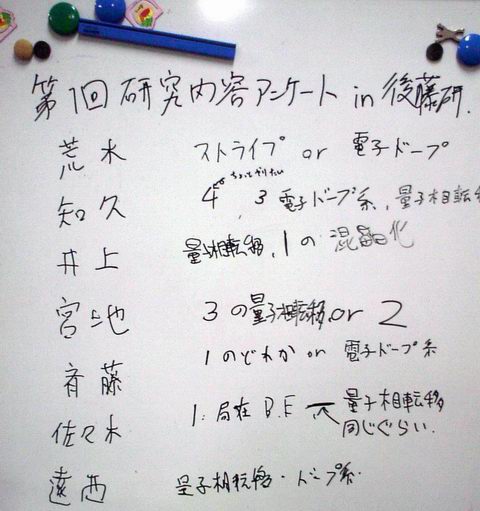 第1回 研究内容アンケート in 後藤研.
荒木 ストライプ or 電子ドープ
ちょっとやりたい
知久 4, 3 電子ドープ系, 量子相転移
井上 量子相転移, 1の混晶化
宮地 3の量子相転移 or 2
斉藤 1のどれか or 電子ドープ系
佐々木 1: 局在 B.E 量子相転移
同じぐらい.
遠西 量子相転移・ドープ系.